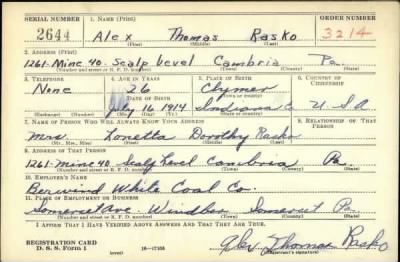 SERIAL NUMBER
1. NAME (Print)
ORDER NUMBER
2644
Alex Thomas Rasko
3214
(First) (Middle) (Last)
2. ADDRESS (Print)
1261 Mine 40. Scalp Level Cambria Pa.
(Number and street or R. F. D. number) (Town) (County) (State)
3. TELEPHONE
4. AGE IN YEARS
5. PLACE OF BIRTH
6. COUNTRY OF CITIZENSHIP
None
26
Clymer
DATE OF BIRTH
(Town or county)
July 16 1914
Indiana
U.S.A
(Exchange) (Number)
(Mo.) (Day) (Yr.)
(State or country)
7. NAME OF PERSON WHO WILL ALWAYS KNOW YOUR ADDRESS
8. RELATIONSHIP OF THAT PERSON
Mrs. Loretta Dorothy Rasko
(Mr., Mrs., Miss) (First) (Middle) (Last)
9. ADDRESS OF THAT PERSON
1261 Mine 40 Scalp Level Cambria Pa.
(Number and street or R. F. D. number) (Town) (County) (State)
10. EMPLOYER'S NAME
Berwind White Coal Co.
11. PLACE OF EMPLOYMENT OR BUSINESS
Somerset Ave. Windber Somerset Pa.
(Number and street or R. F. D. number) (Town) (County) (State)
I AFFIRM THAT I HAVE VERIFIED ABOVE ANSWERS AND THAT THEY ARE TRUE.
REGISTRATION CARD
D. S. S. Form 1
(over)
16—17105
Alex Thomas Rasko